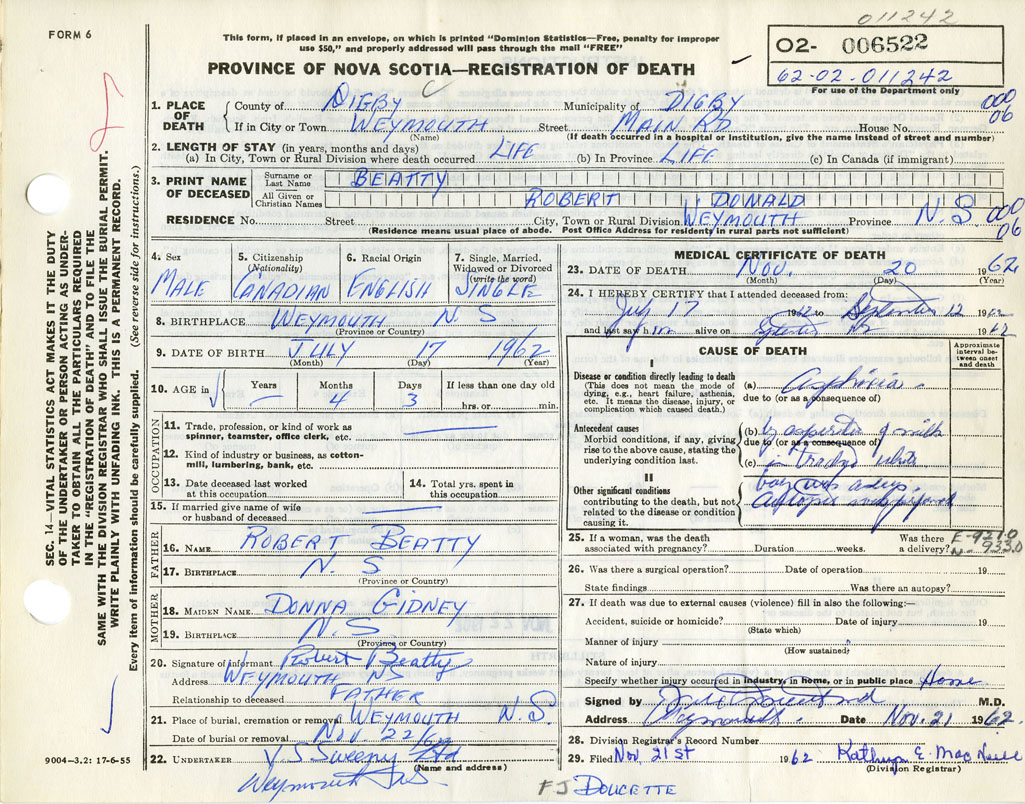 011242
FORM 6
This form, if placed in an envelope, on which is printed "Dominion Statistics—Free, penalty for improper
use $50," and properly addressed will pass through the mail "FREE"
02- 006522
62-02-011242
For use of the Department only
PROVINCE OF NOVA SCOTIA—REGISTRATION OF DEATH
1. PLACE OF DEATH County of DIGBY Municipality of DIGBY 000 06
If in City or Town WEYMOUTH Street MAIN RD House No.
(Name) (If death occurred in a hospital or institution, give the name instead of street and number)
2. LENGTH OF STAY (in years, months and days)
(a) In City, Town or Rural Division where death occurred LIFE (b) In Province LIFE (c) In Canada (if immigrant)
3. PRINT NAME OF DECEASED Surname or Last Name BEATTY
All Given or Christian Names ROBERT DONALD
RESIDENCE No. Street City, Town or Rural Division WEYMOUTH Province N.S 000 06
(Residence means usual place of abode. Post Office Address for residents in rural parts not sufficient)
4. Sex MALE
5. Citizenship (Nationality) CANADIAN
6. Racial Origin ENGLISH
7. Single, Married, Widowed or Divorced (write the word) SINGLE
8. BIRTHPLACE WEYMOUTH N S
(Province or Country)
9. DATE OF BIRTH JULY 17 1962
(Month) (Day) (Year)
10. AGE in Years — Months 4 Days 3 If less than one day old hrs. or min.
OCCUPATION
11. Trade, profession, or kind of work as
spinner, teamster, office clerk, etc.
12. Kind of industry or business, as cotton-
mill, lumbering, bank, etc.
13. Date deceased last worked
at this occupation
14. Total yrs. spent in
this occupation
15. If married give name of wife
or husband of deceased
FATHER
16. NAME ROBERT BEATTY
17. BIRTHPLACE N. S
(Province or Country)
MOTHER
18. MAIDEN NAME DONNA GIDNEY
19. BIRTHPLACE N.S.
(Province or Country)
20. Signature of informant Robert Beatty
Address WEYMOUTH NS
Relationship to deceased FATHER
21. Place of burial, cremation or removal WEYMOUTH N.S.
Date of burial or removal Nov 22/62
22. UNDERTAKER V. S Sweeny Ltd
(Name and address)
Weymouth NS
MEDICAL CERTIFICATE OF DEATH
23. DATE OF DEATH Nov. 20 1962
(Month) (Day) (Year)
24. I HEREBY CERTIFY that I attended deceased from:
July 17 1962 to September 12 1962
and last saw him alive on September 12 1962
CAUSE OF DEATH
Approximate interval between onset and death
I
Disease or condition directly leading to death
(This does not mean the mode of
dying, e.g., heart failure, asthenia,
etc. It means the disease, injury, or
complication which caused death.)
(a) Asphixia
due to (or as a consequence of)
Antecedent causes
Morbid conditions, if any, giving
rise to the above cause, stating the
underlying condition last.
(b) by aspiration of milk
due to (or as a consequence of)
(c) in Trachea while
baby was asleep.
II
Other significant conditions
contributing to the death, but not
related to the disease or condition
causing it.
Autopsy performed
25. If a woman, was the death
associated with pregnancy? Duration weeks.
Was there
a delivery?
E-9210
N-9330
26. Was there a surgical operation? Date of operation 19
State findings Was there an autopsy?
27. If death was due to external causes (violence) fill in also the following:—
Accident, suicide or homicide? Date of injury 19
(State which)
Manner of injury
(How sustained)
Nature of injury
Specify whether injury occurred in industry, in home, or in public place Home
Signed by M.D.
Address Weymouth. Date Nov. 21 1962.
28. Division Registrar's Record Number
29. Filed Nov 21st 1962 Kathryn E. MacNeill
(Division Registrar)
SEC. 14—VITAL STATISTICS ACT MAKES IT THE DUTY
OF THE UNDERTAKER OR PERSON ACTING AS UNDER-
TAKER TO OBTAIN ALL THE PARTICULARS REQUIRED
IN THE "REGISTRATION OF DEATH" AND TO FILE THE
SAME WITH THE DIVISION REGISTRAR WHO SHALL ISSUE THE BURIAL PERMIT.
WRITE PLAINLY WITH UNFADING INK. THIS IS A PERMANENT RECORD.
Every item of information should be carefully supplied. (See reverse side for instructions.)
9004—3.2: 17-6-55
FJ DOUCETTE